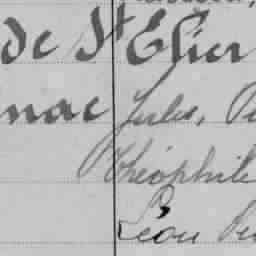 de St Elier
nac Jules,
Théophile
Léon